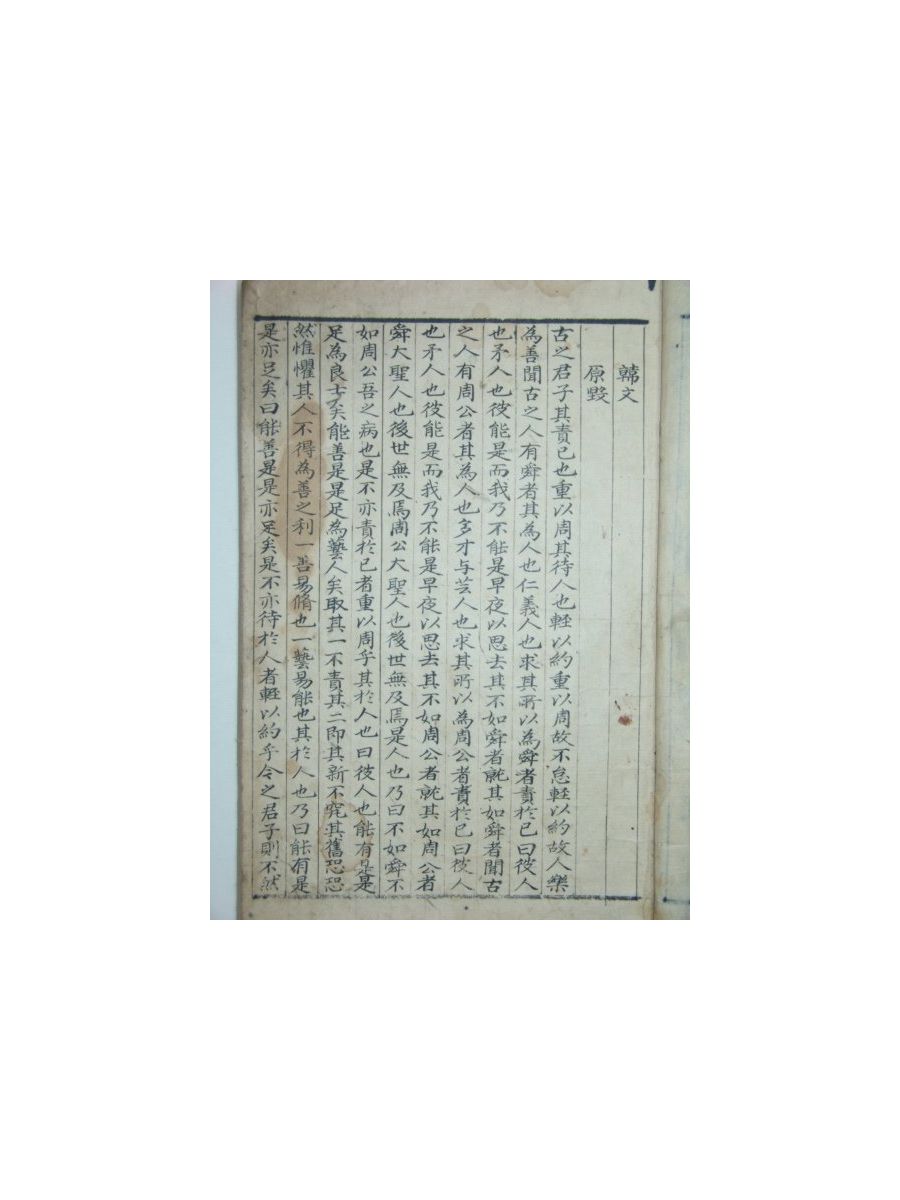 韓文
原毀
古之君子其責已也重以周其待人也軽以約重以周故不怠軽以約故人樂
為善聞古之人有舜者其為人也仁義人也求其所以為舜者責於已曰彼人
也予人也彼能是而我乃不能是早夜以思去其不如舜者就其如舜者聞古
之人有周公者其為人也多才与芸人也求其所以為周公者責於已曰彼人
也予人也彼能是而我乃不能是早夜以思去其不如周公者就其如周公者
舜大聖人也後世無及焉周公大聖人也後世無及焉是人也乃曰不如舜不
如周公吾之病也是不亦責於已者重以周乎其於人也曰彼人也能有是是
足為良士矣能善是是足為藝人矣取其一不責其二即其新不究其舊恐恐
然惟懼其人不得為善之利一善易脩也一藝易能也其於人也乃曰能有是
是亦足矣曰能善是是亦足矣是不亦待於人者軽以約乎今之君子則不然